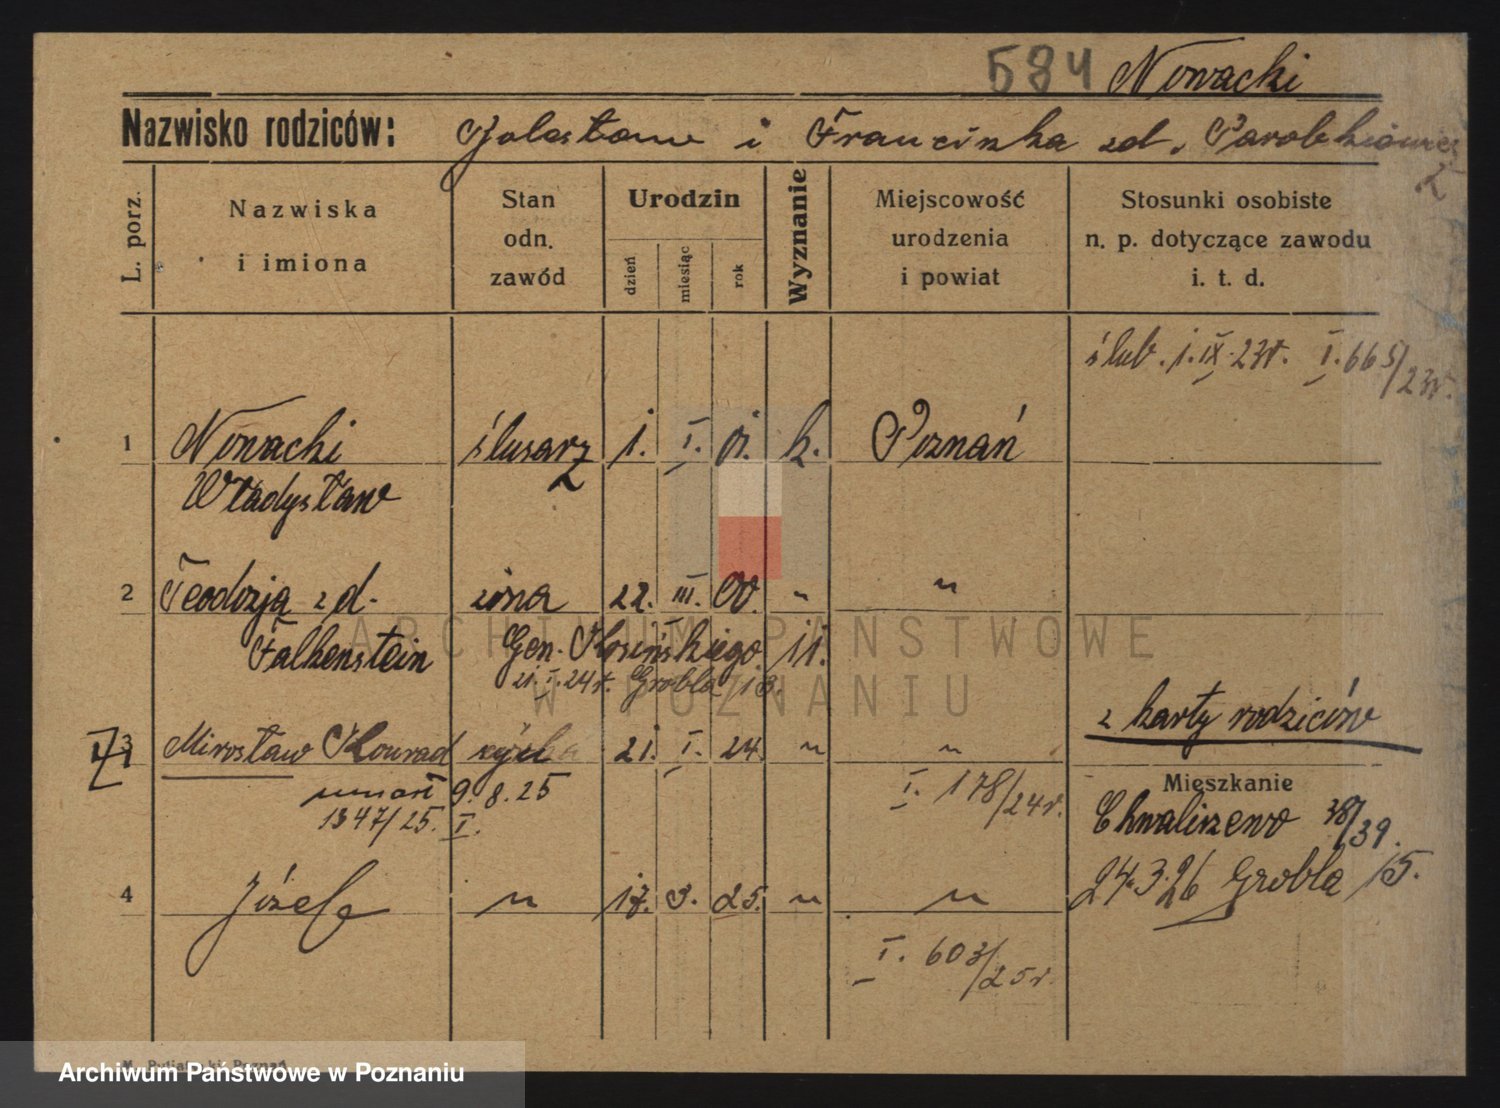 584 Nowacki
Nazwisko rodziców: i Franciszka zd.
L. porz.
Nazwiska
i imiona
Stan
odn.
zawód
Urodzin
dzień
miesiąc
rok
Wyznanie
Miejscowość
urodzenia
i powiat
Stosunki osobiste
n. p. dotyczące zawodu
i. t. d.
ślub. 1.IX.23r. I.665/23r.
1 Nowacki ślusarz 1. I. 01. k. Poznań
Władysław
2 Teodozja z d. żona 22. III. 00. " "
Falkenstein Gen. Kosińskiego 11.
21.I.24r. Grobla
z karty rodziców
3 Mirosław Konrad 21. I. 24. " "
Mieszkanie
umarł 9.8.25 I. 178/24r.
1347/25. I.
Chwaliszewo 38/39.
24.3.26 Grobla 15.
4 Józef " 17. 3. 25. " "
I. 603/25r.
ARCHIWUM PAŃSTWOWE
W POZNANIU
Archiwum Państwowe w Poznaniu